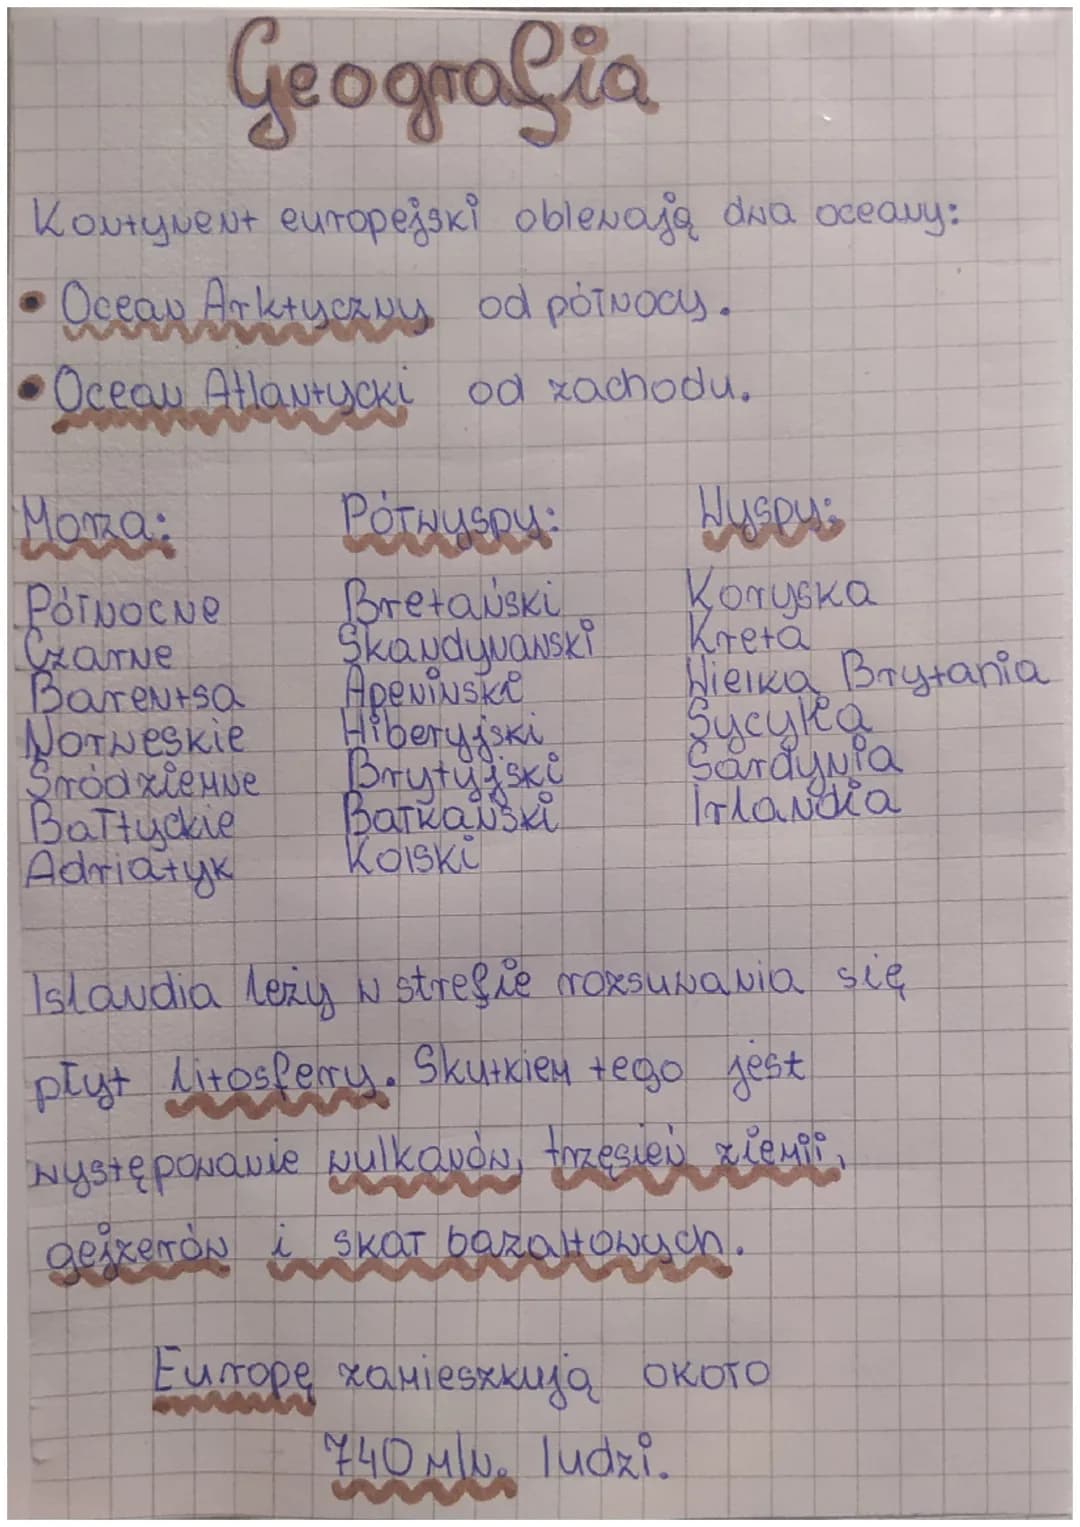 Geografia
Kontynent europejski oblewają dwa oceany:
• Ocean Arktyczny od północy.
• Ocean Atlantycki od zachodu.
Morza: Półwyspy: Wyspy:
Północne Bretański Koryska
Czarne Skandynawski Kreta
Barentsa Apeniński Wielka Brytania
Norweskie Hiberyjski Sycylia
Śródziemne Brytyjski Sardynia
Bałtyckie Bałkański Irlandia
Adriatyk Kolski
Islandia leży w strefie rozsuwania się
płyt litosfery. Skutkiem tego jest
występowanie wulkanów, trzęsień ziemii,
gejzerów i skał bazaltowych.
Europę zamieszkują około
740 mln. ludzi.